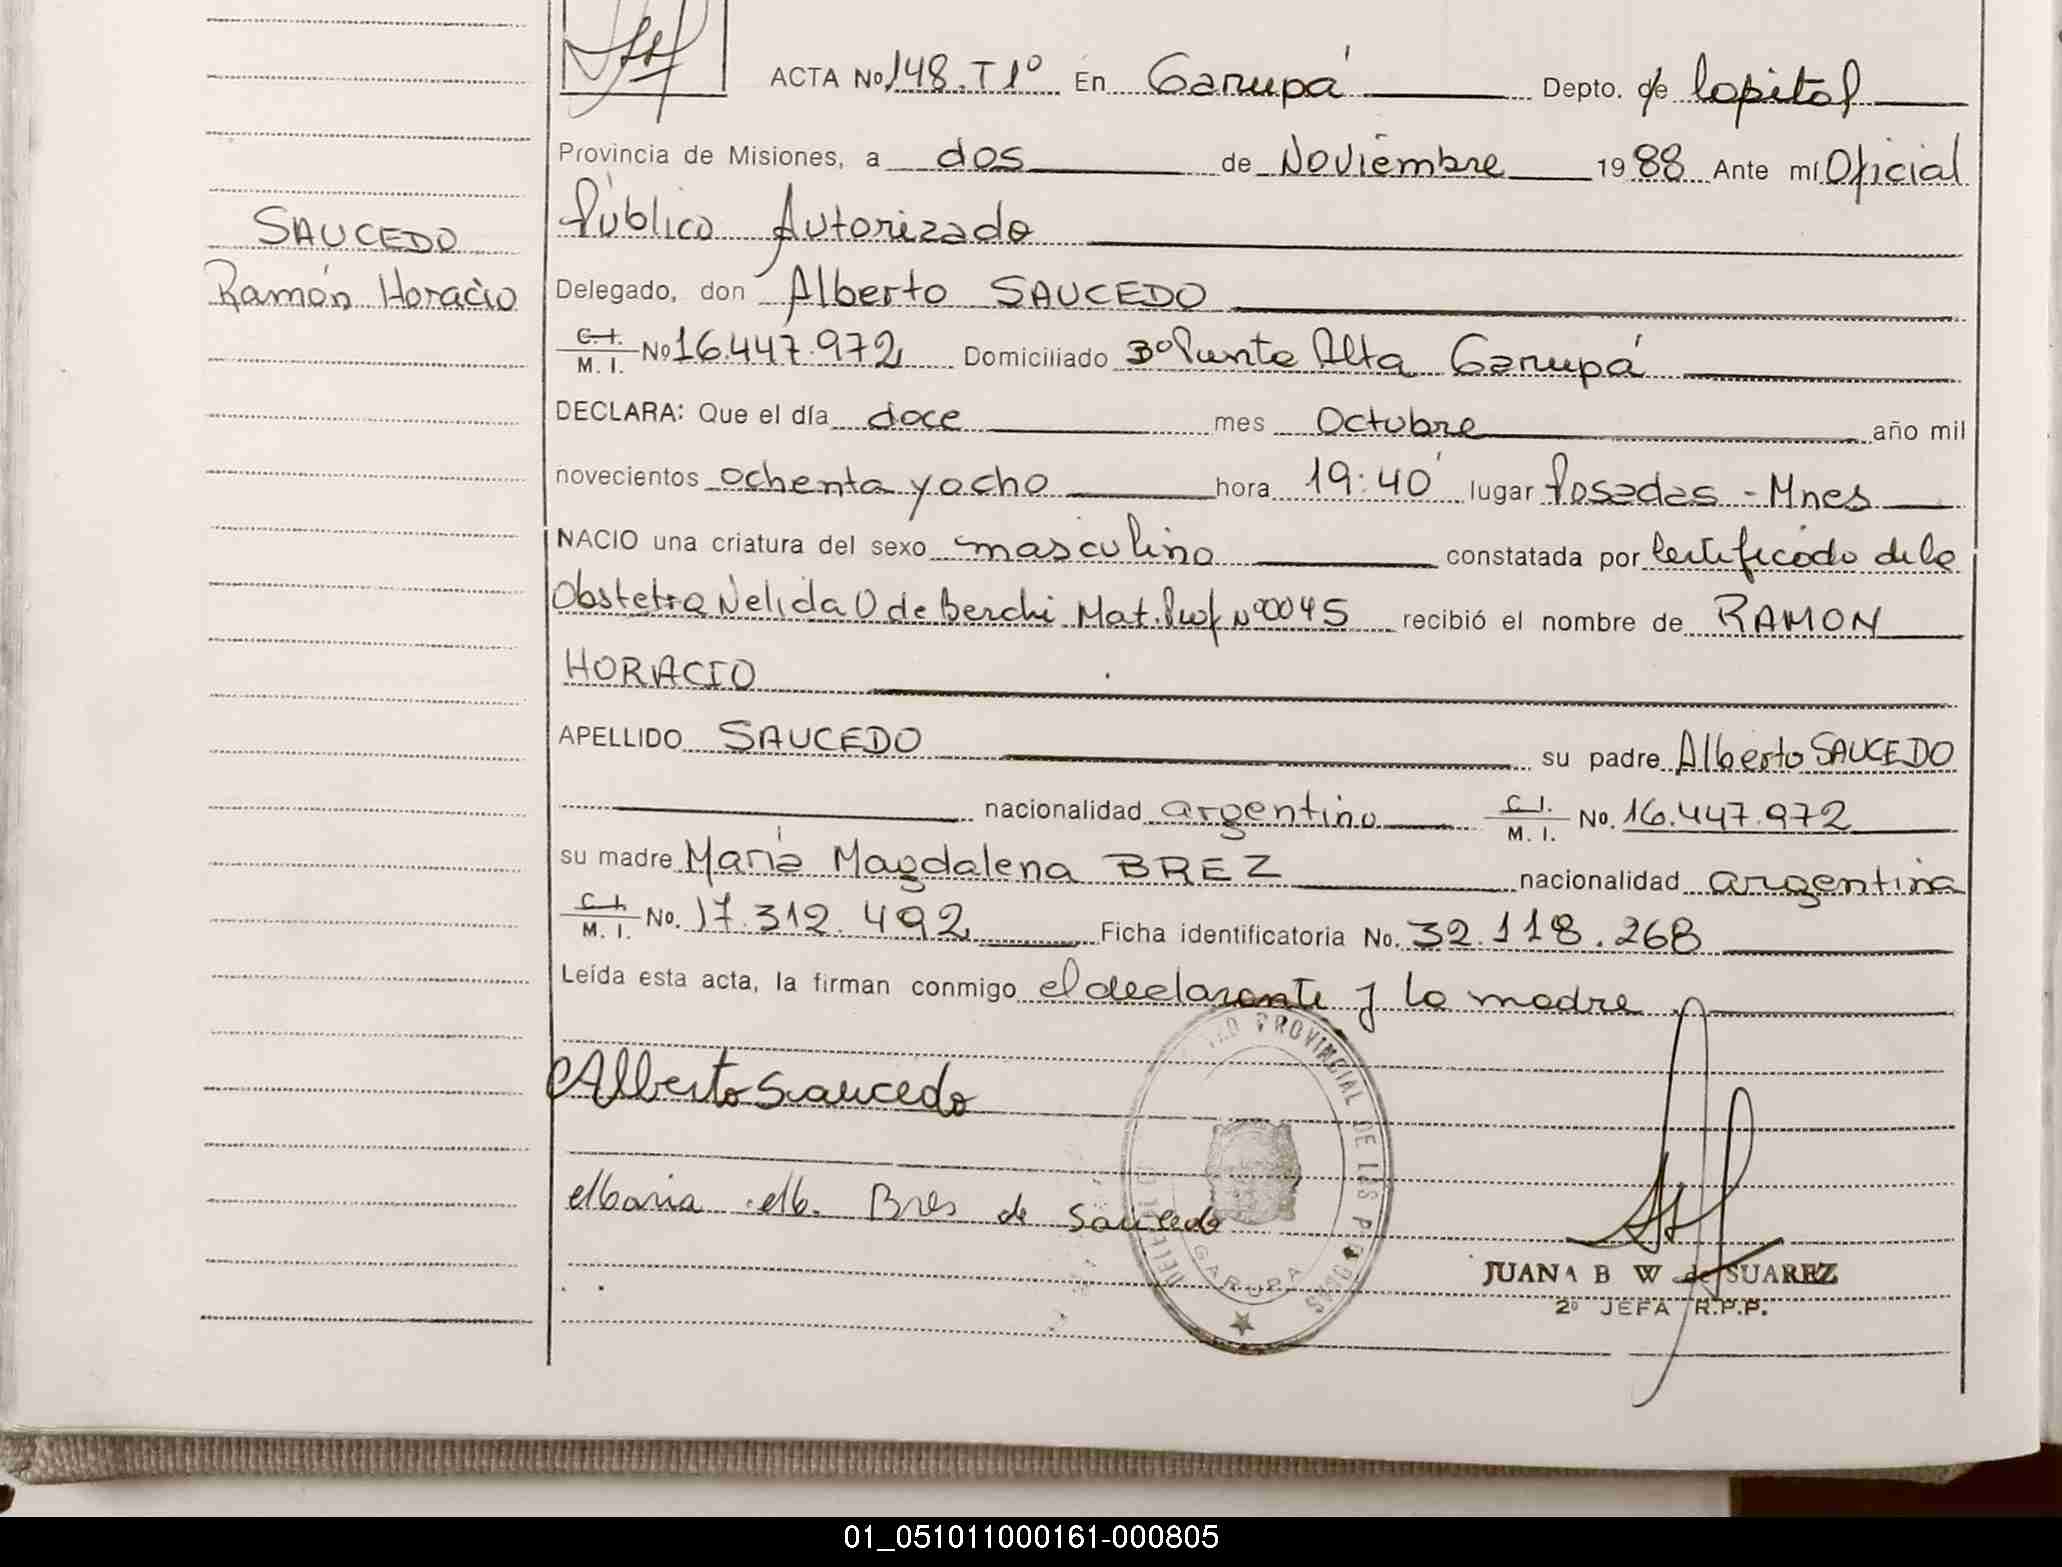 ACTA No 148. T1º En Garupá Depto. de Capital
Provincia de Misiones, a dos de Noviembre 1988 Ante mí Oficial
Público Autorizado
SAUCEDO
Ramón Horacio
Delegado, don Alberto SAUCEDO
C. I. M. I. No 16.447.972 Domiciliado Bº Punta Alta Garupá
DECLARA: Que el día doce mes Octubre año mil
novecientos ochenta y ocho hora 19:40 lugar Posadas - Mnes
NACIO una criatura del sexo masculino constatada por Certificado de la
Obstetra Nelida O de Berchi Mat. Prof Nº 0045 recibió el nombre de RAMON
HORACIO
APELLIDO SAUCEDO su padre Alberto SAUCEDO
nacionalidad argentino C. I. M. I. No. 16.447.972
su madre María Magdalena BREZ nacionalidad argentina
C. I. M. I. No. 17.312.492 Ficha identificatoria No. 32.118.268
Leída esta acta, la firman conmigo el declarante y la madre
Alberto Saucedo
Maria M. Bres de Saucedo
PROVINCIAL DE LAS PERSONAS
GARUPA
JUANA B W de SUAREZ
2º JEFA R.P.P.
01_051011000161-000805